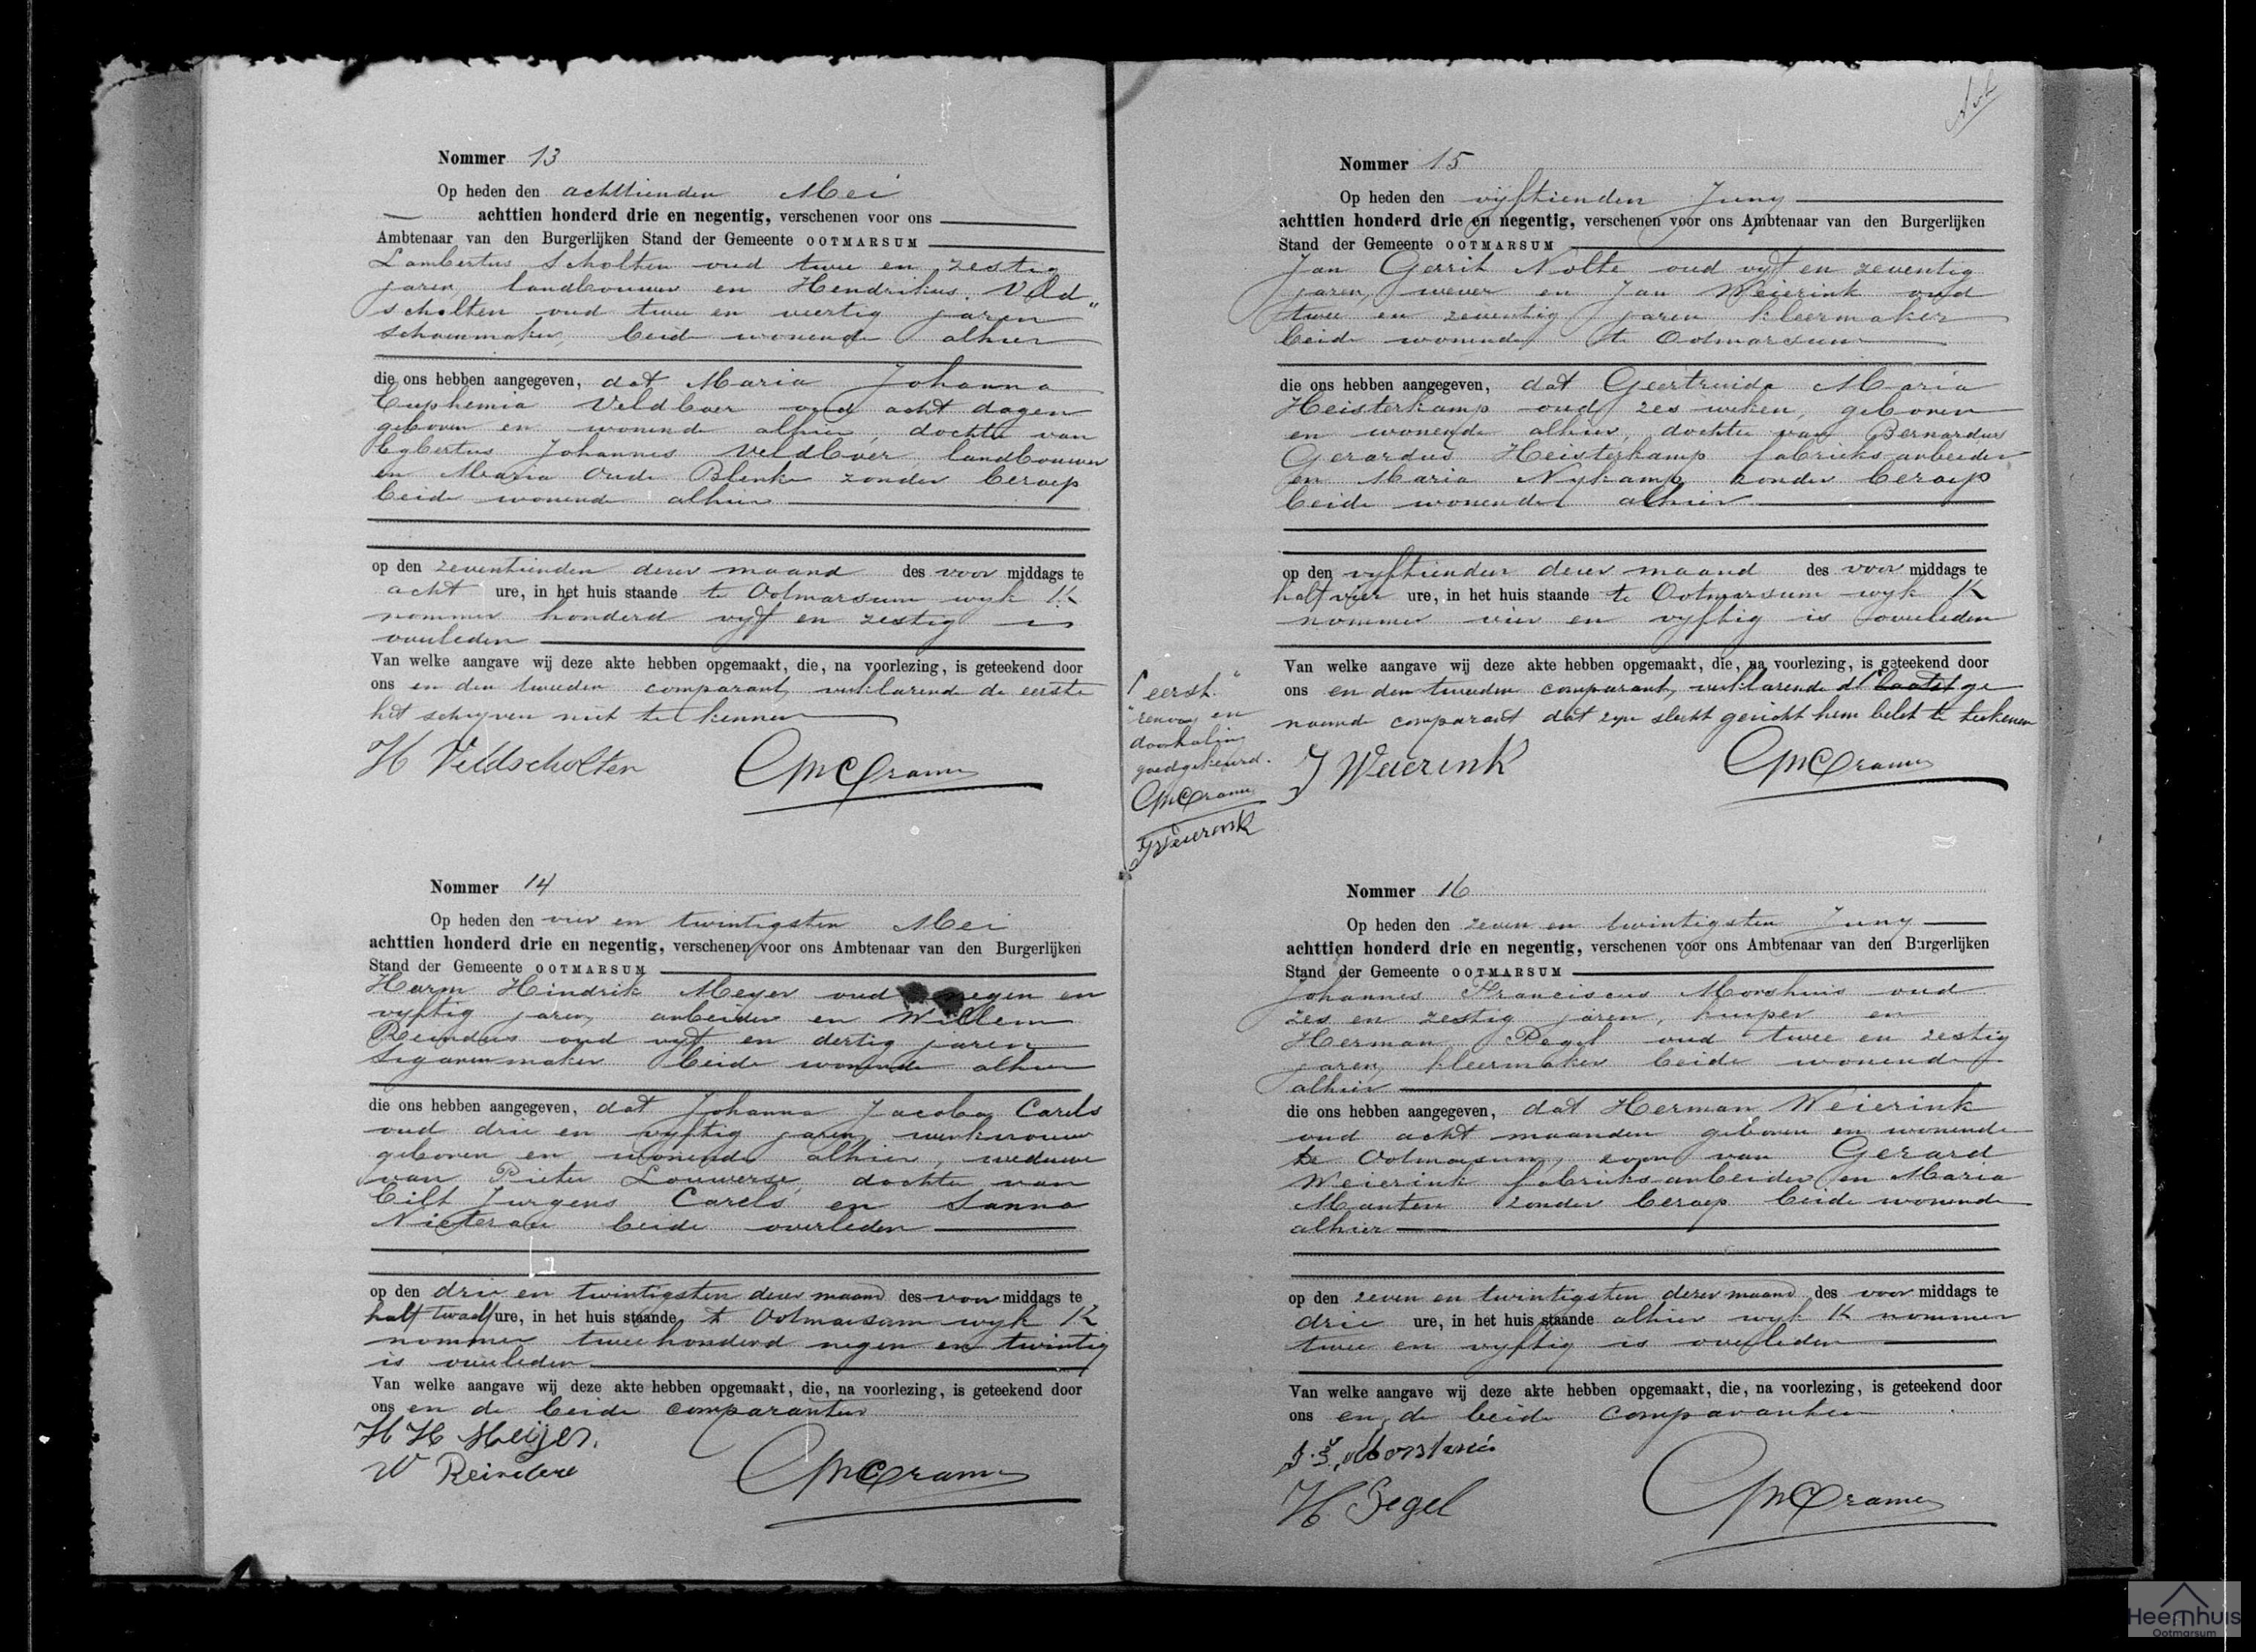 Nommer 13
Op heden den achttienden Mei
achttien honderd drie en negentig, verschenen voor ons
Ambtenaar van den Burgerlijken Stand der Gemeente OOTMARSUM
Lambertus Scholten oud twee en zestig
jaren landbouwer en Hendrikus Veld„
scholten oud twee en veertig jaren
schoenmaker, beide wonende alhier
die ons hebben aangegeven, dat Maria Johanna
Euphemia Veldboer oud acht dagen
geboren en wonende alhier, dochter van
Egbertus Johannes Veldboer, landbouwer
en Maria Oude Blenke zonder beroep
beide wonende alhier
op den zeventienden dezer maand des voor middags te
acht ure, in het huis staande te Ootmarsum wyk K
nommer honderd vyf en zestig is
overleden
Van welke aangave wij deze akte hebben opgemaakt, die, na voorlezing, is geteekend door
ons en den tweeden comparant, verklarende de eerste
het schryven niet te kennen
H Veldscholten
Nommer 14
Op heden den vier en twintigsten Mei
achttien honderd drie en negentig, verschenen voor ons Ambtenaar van den Burgerlijken
Stand der Gemeente OOTMARSUM
Harm Hindrik Meyer oud negen en
vyftig jaren, arbeider en Willem
Reinders oud vyf en dertig jaren
sigarenmaker beide wonende alhier
die ons hebben aangegeven, dat Johanna Jacoba Carels
oud drie en vyftig jaren, werkvrouw
geboren en wonende alhier, weduwe
van Pieter Louwerse, dochter van
Eilt Jurgens Carels en Sanna
beide overleden
op den drie en twintigsten dezer maand des voor middags te
half twaalf ure, in het huis staande te Ootmarsum wyk K
nommer tweehonderd negen en twintig
is overleden
Van welke aangave wij deze akte hebben opgemaakt, die, na voorlezing, is geteekend door
ons en de beide comparanten
H H Meijer.
W Reinders
Nommer 15
Op heden den vyftienden Juny
achttien honderd drie en negentig, verschenen voor ons Ambtenaar van den Burgerlijken
Stand der Gemeente OOTMARSUM
Jan Gerrit Nolte oud vyf en zeventig
jaren, wever en Jan Weierink oud
twee en zeventig jaren kleermaker
beide wonende te Ootmarsum
die ons hebben aangegeven, dat Geertruida Maria
Heisterkamp oud zes weken, geboren
en wonende alhier, dochter van Bernardus
Gerardus Heisterkamp fabrieksarbeider
en Maria Nykamp zonder beroep
beide wonende alhier
op den vyftienden dezer maand des voor middags te
half vier ure, in het huis staande te Ootmarsum wyk K
nommer vier en vyftig is overleden
Van welke aangave wij deze akte hebben opgemaakt, die, na voorlezing, is geteekend door
ons en den tweeden comparant, verklarende de laatst ge
noemde comparant dat zyn slecht gezicht hem belet te teekenen
J Weierink
„eerst„
renvooy en
doorhaling
goedgekeurd.
J Weierink
Nommer 16
Op heden den zeven en twintigsten Juny
achttien honderd drie en negentig, verschenen voor ons Ambtenaar van den Burgerlijken
Stand der Gemeente OOTMARSUM
Johannes Franciscus Morshuis oud
zes en zestig jaren, kuiper en
Herman Pegel oud twee en zestig
jaren, kleermaker beide wonende
alhier
die ons hebben aangegeven, dat Herman Weierink
oud acht maanden geboren en wonende
te Ootmarsum, zoon van Gerard
Weierink fabrieksarbeider en Maria
Manten zonder beroep beide wonende
alhier
op den zeven en twintigsten dezer maand des voor middags te
drie ure, in het huis staande alhier wyk K nommer
twee en vyftig is overleden
Van welke aangave wij deze akte hebben opgemaakt, die, na voorlezing, is geteekend door
ons en de beide comparanten
J.F. Morshuis
H Pegel
Heemhuis
Ootmarsum